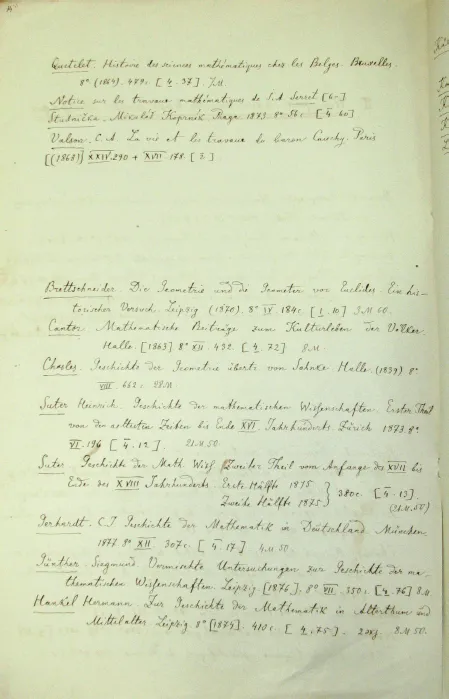 Quetelet. Histoire des sciences mathématiques chez les Belges. Bruxelles.
8° (1864). 479c. [4.37]
Notice sur les travaux mathématiques de S.A. Serret [6-]
Studnička. Mikoláš Koprník. Praga. 1873. 8° 36c. [4.60]
Valson. C.A. La vie et les travaux du baron Cauchy. Paris
[(1868)] XXIV. 290 + XVII. 178. [3.]
Brettschneider. Die Geometrie und die Geometer vor Euclides. Ein his-
torischer Versuch. Leipzig (1870). 8° IV. 184c. [1.10] 3M 50.
Cantor. Mathematische Beiträge zum Kulturleben der Völker.
Halle. [1863] 8° XII. 432. [4.72] 8M
Chasles. Geschichte der Geometrie übertr. von Sohnke. Halle. (1839) 8°
VIII. 662c 28M
Suter Heinrich. Geschichte der mathematischen Wissenschaften. Erster Theil
von den aeltesten Zeiten bis Ende XVI. Jahrhunderts. Zürich 1873. 8°
VI. 196 [4.12.] 21.M.50.
Suter. Geschichte der Math. Wiss. Zweiter Theil vom Anfange des XVII bis
Ende des XVIII Jahrhunderts. Erste Hälfte 1875 } 380c. [4.13]
Zweite Hälfte 1875 (21.M.50)
Gerhardt. C.I Geschichte der Mathematik in Deutschland. München.
1877 8° XII 307c. [4.17.] 4M 50.
Günther. Siegmund. Vermischte Untersuchungen zur Geschichte der ma-
thematischen Wissenschaften. Leipzig. [1876]. 8° VII. 350c. [4.76] 8M
Hankel Hermann. Zur Geschichte der Mathematik in Alterthum und
Mittelalter. Leipzig. 8° [1874]. 410c. [4.75]. 8.M 50.